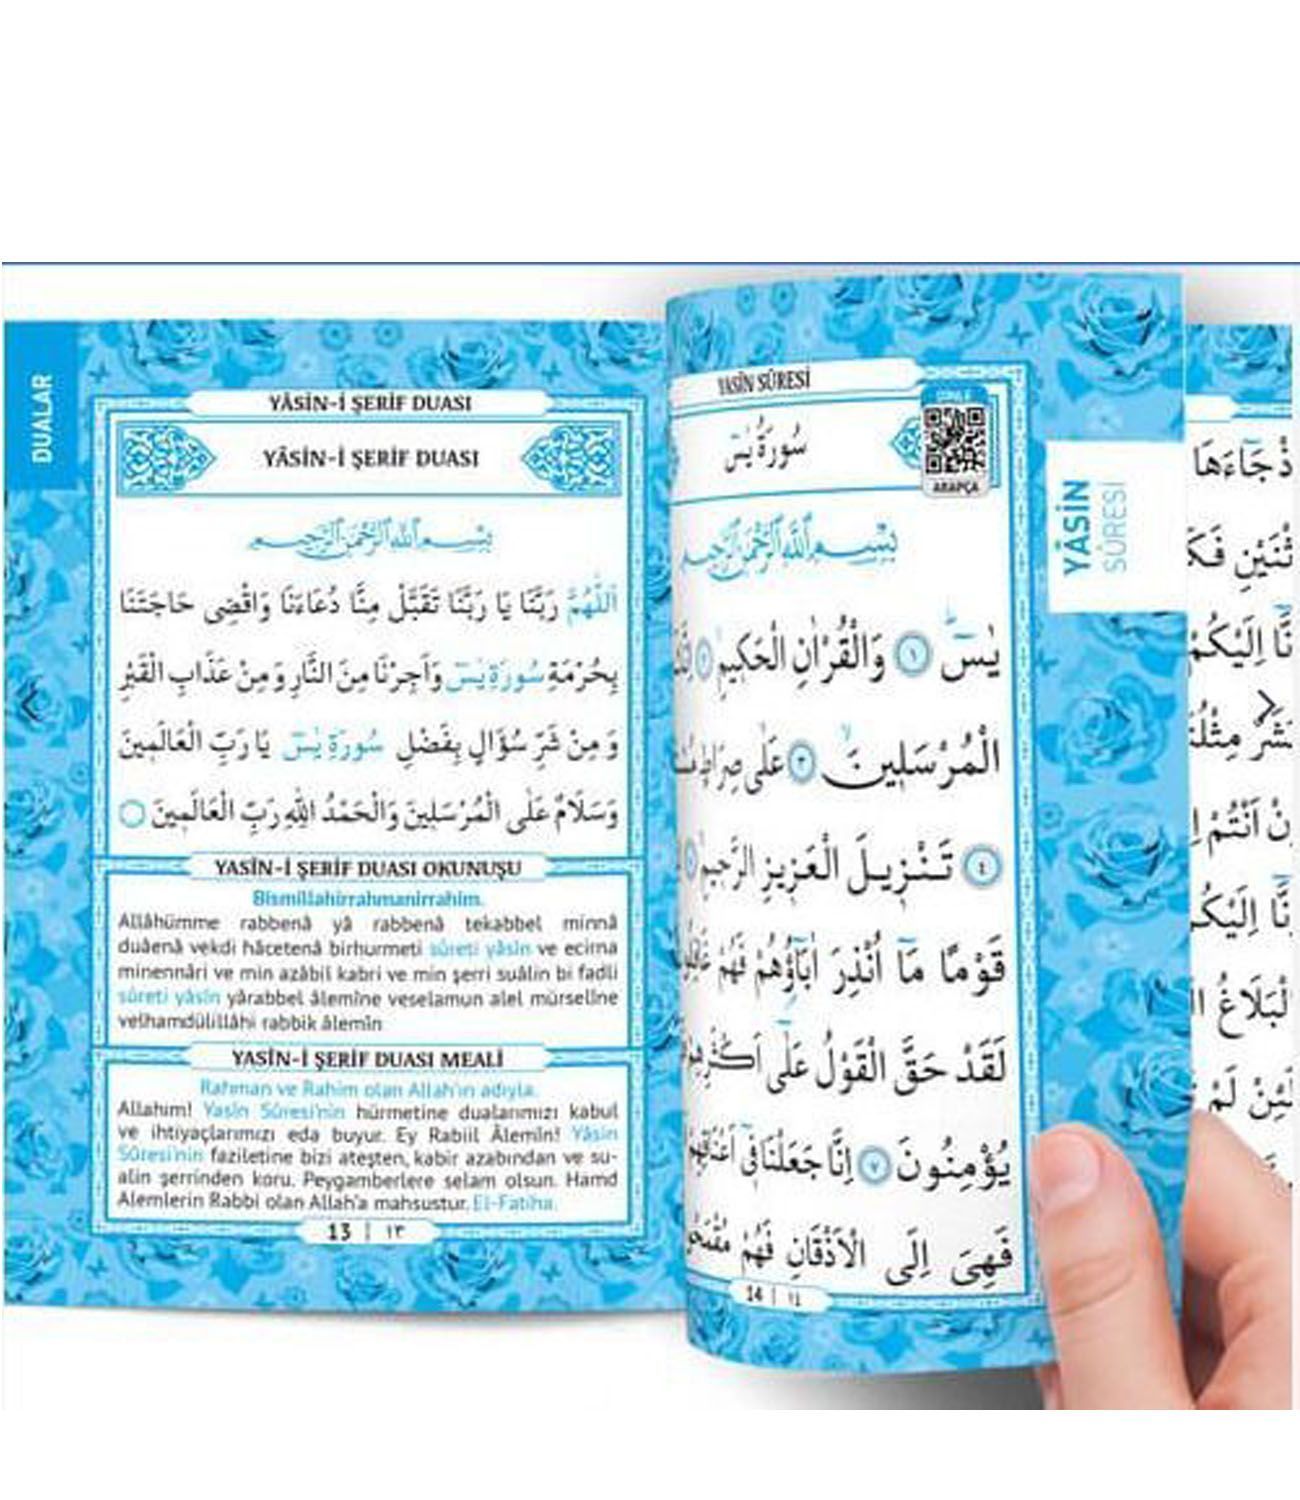 DUALAR
YÂSİN-İ ŞERİF DUASI
YÂSİN-İ ŞERİF DUASI
بِسْمِ اللّٰهِ الرَّحْمٰنِ الرَّحِيمِ
اَللّٰهُمَّ رَبَّنَا يَا رَبَّنَا تَقَبَّلْ مِنَّا دُعَاءَنَا وَاقْضِى حَاجَتَنَا
بِحُرْمَةِ سُورَةِ يٰسٓ وَاَجِرْنَا مِنَ النَّارِ وَمِنْ عَذَابِ الْقَبْرِ
وَمِنْ شَرِّ سُؤَالٍ بِفَضْلِ سُورَةِ يٰسٓ يَا رَبَّ الْعَالَمِينَ
وَسَلَامٌ عَلَى الْمُرْسَلِينَ وَالْحَمْدُ اللّٰهِ رَبِّ الْعَالَمِينَ
YASİN-İ ŞERİF DUASI OKUNUŞU
Bismillahirrahmanirrahim.
Allâhümme rabbenâ yâ rabbenâ tekabbel minnâ
duâenâ vekdi hâcetenâ birhurmeti sûreti yâsîn ve ecirna
minennâri ve min azâbil kabri ve min şerri suâlin bi fadli
sûreti yâsîn yârabbel âlemîne veselamun alel mürselîne
velhamdülillâhi rabbik âlemîn
YASİN-İ ŞERİF DUASI MEALİ
Rahman ve Rahim olan Allah'ın adıyla.
Allahım! Yasin Sûresi'nin hürmetine dualarımızı kabul
ve ihtiyaçlarımızı eda buyur. Ey Rabiil Âlemin! Yâsin
Sûresi'nin faziletine bizi ateşten, kabir azabından ve su-
alin şerrinden koru. Peygamberlere selam olsun. Hamd
Alemlerin Rabbi olan Allah'a mahsustur. El-Fatiha.
13 | ١٣
YASİN SÛRESİ
سُورَةُ يٰسٓ
ARAPÇA
بِسْمِ اللّٰهِ الرَّحْمٰنِ الرَّحِيمِ
يٰسٓ ١ وَالْقُرْاٰنِ الْحَكِيمِ ٢
الْمُرْسَلِينَ ٣ عَلٰى صِرَاطٍ
٤ تَنْزِيلَ الْعَزِيزِ الرَّحِيمِ
قَوْمًا مَٓا اُنْذِرَ اٰبَٓاؤُهُمْ فَهُمْ
لَقَدْ حَقَّ الْقَوْلُ عَلٰٓى اَكْثَرِهِمْ
يُؤْمِنُونَ ٧ اِنَّا جَعَلْنَا فٓى اَعْنَاقِهِمْ
فَهِىَ اِلَى الْاَذْقَانِ فَهُمْ
14 | ١٤
YÂSİN
SÛRESİ
جَٓاءَهَا
اِلَيْكُمْ
مِثْلُنَا
اَنْتُمْ
الْبَلَاغُ
لَئِنْ لَمْ